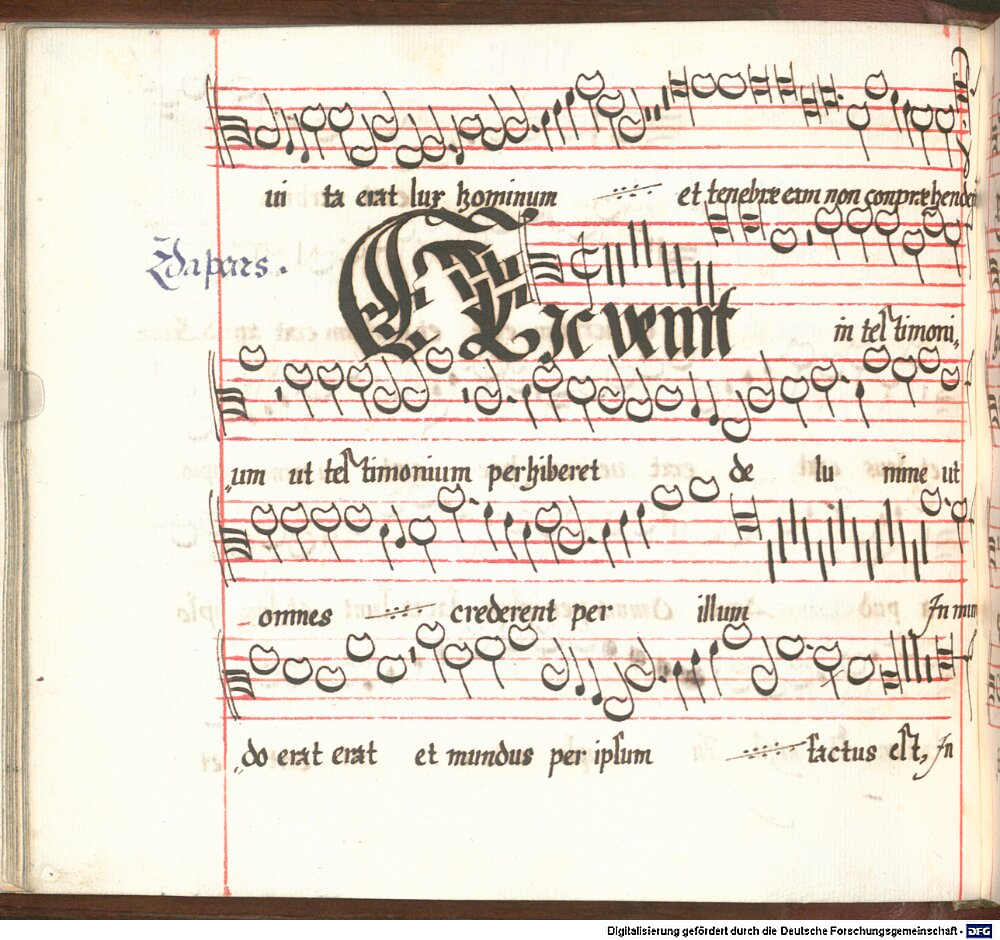 ui ta erat lux hominum et tenebræ eam non conpræhender
2da pars.
Hic venit
in testimoni„
„um ut testimonium perhiberet de lu mine ut
omnes crederent per illum In mun
„do erat erat et mundus per ipsum factus est, In
Digitalisierung gefördert durch die Deutsche Forschungsgemeinschaft - DFG